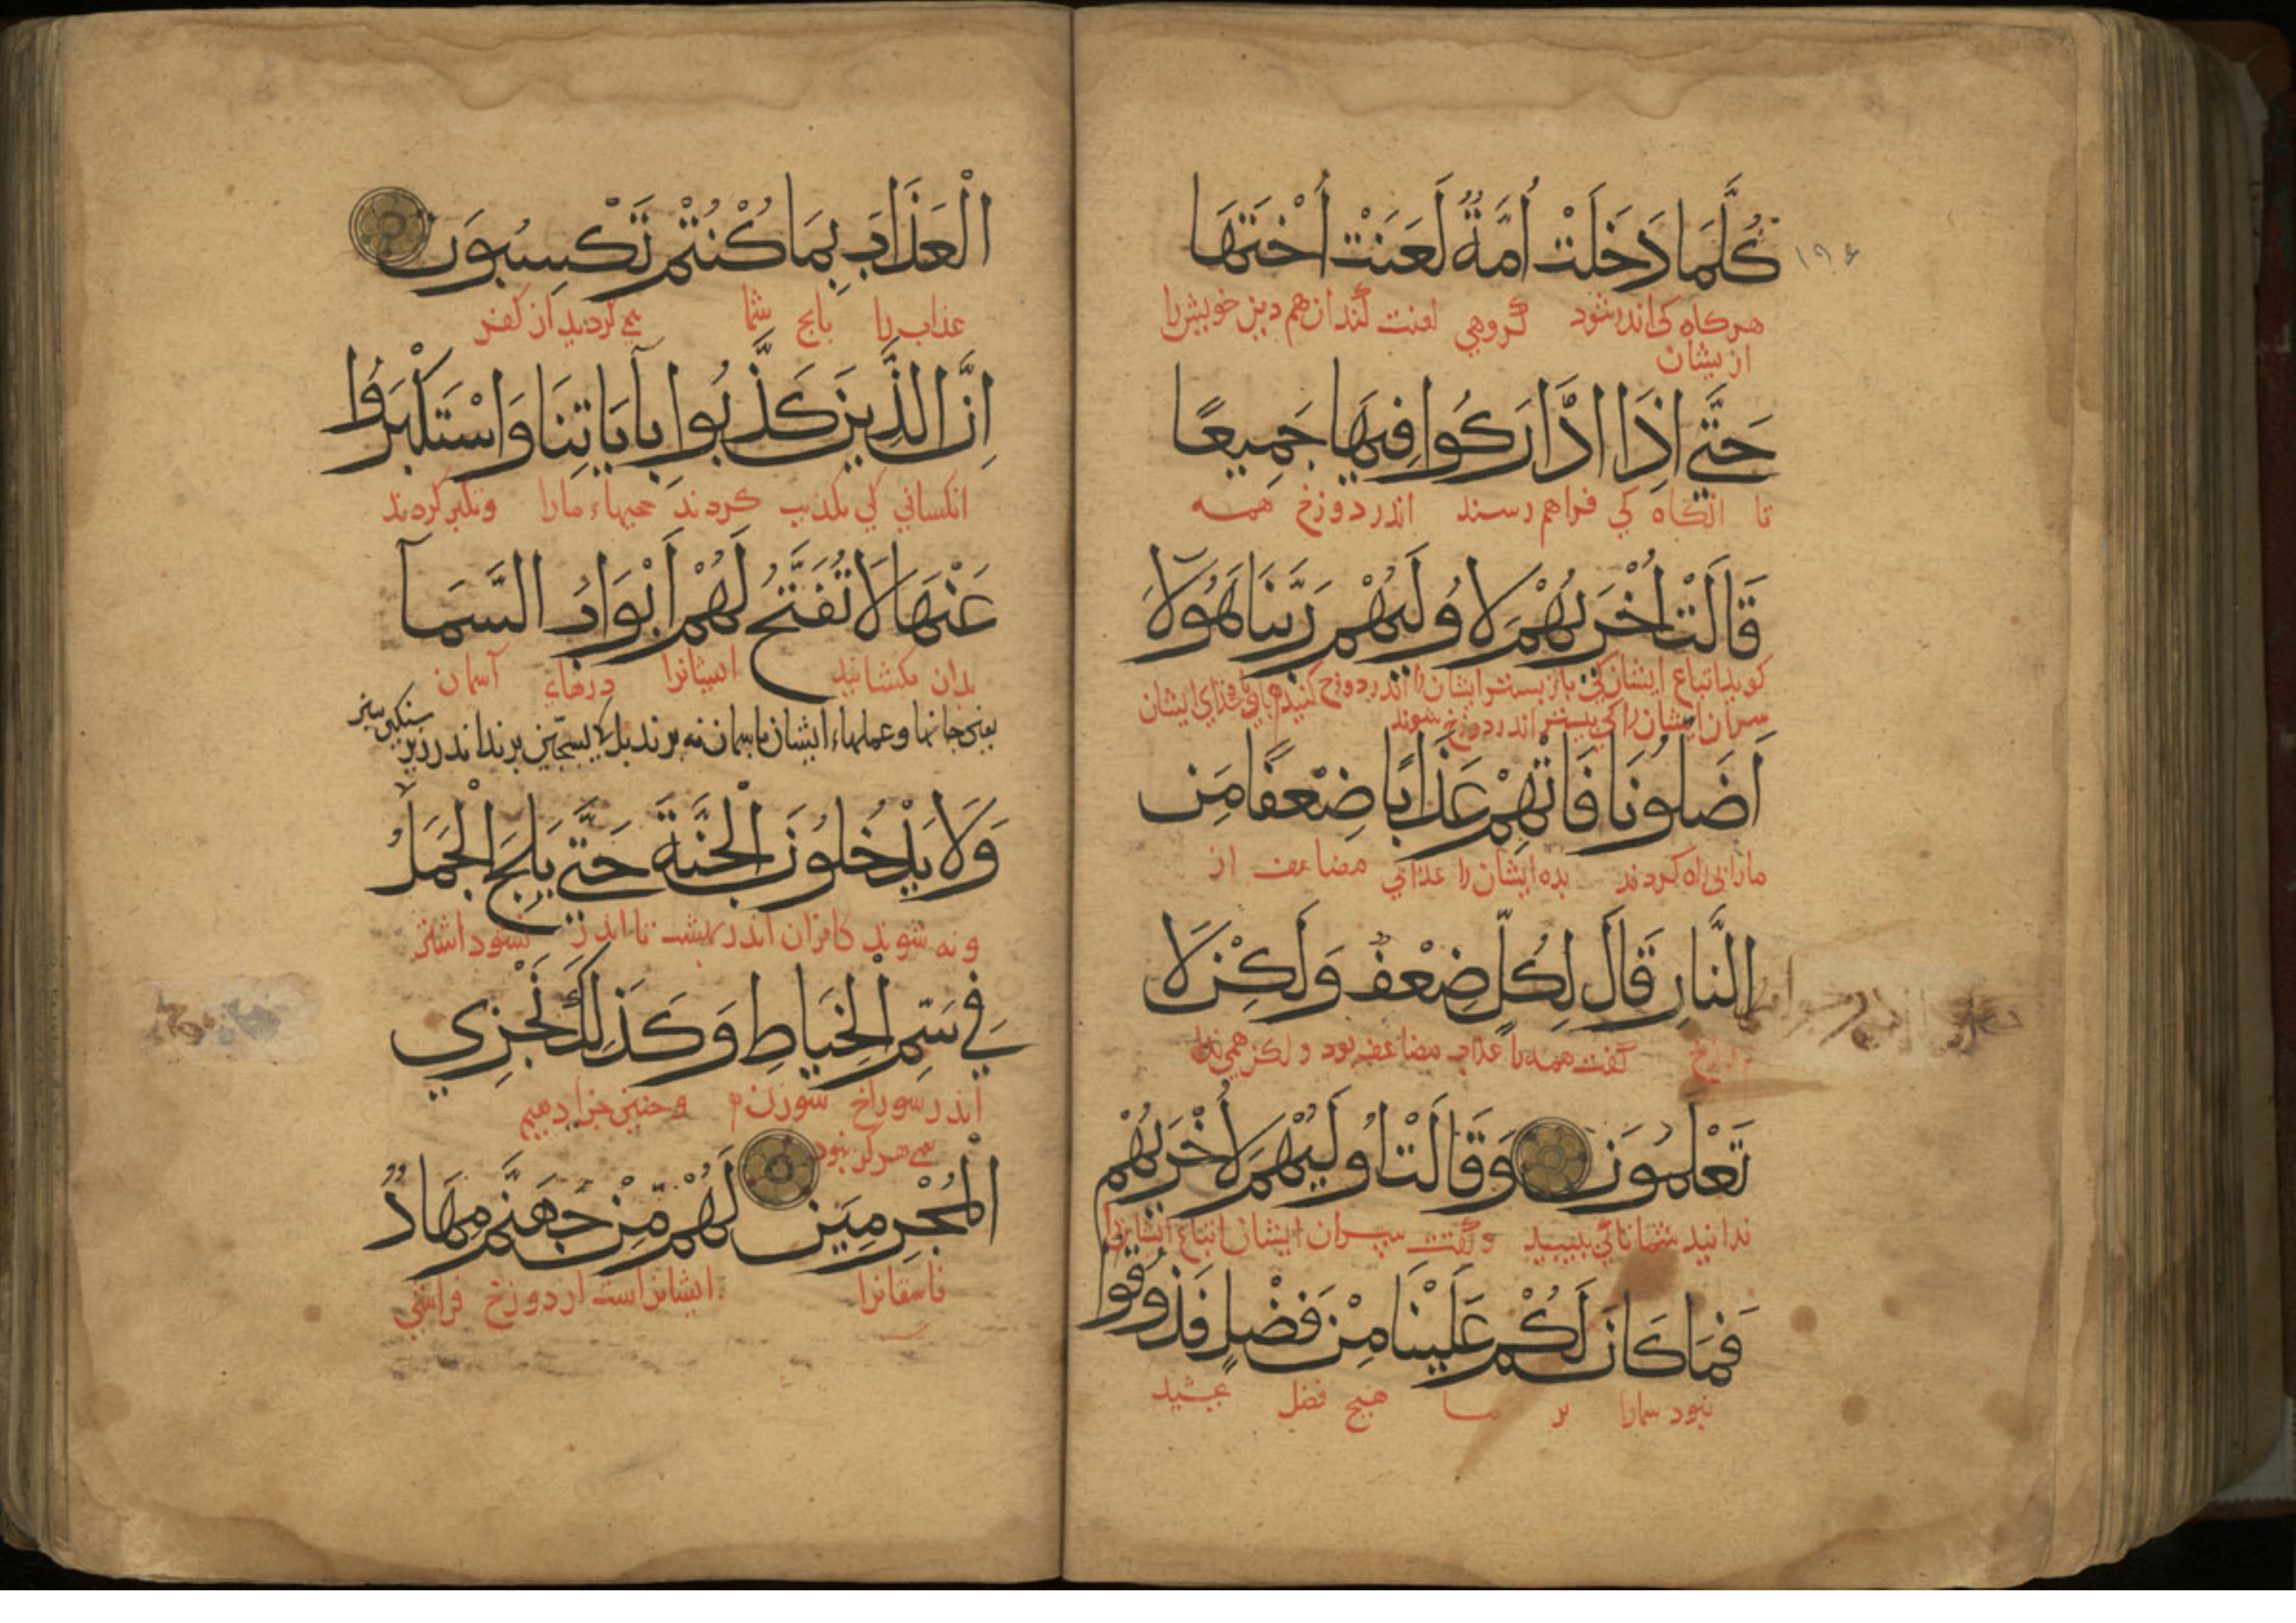 كُلَّمَا دَخَلَتْ أُمَّةٌ لَعَنَتْ أُخْتَهَا
١٩٤
هرکاه کی اندر شود گروهی لعنت کنند ان هم دین خویش را
از یشان
حَتَّى اِذَا ادَّارَكُوا فِيهَا جَمِيعًا
تا انگاه کی فراهم رسند اندر دوزخ همه
قَالَتْ أُخْرَيهُمْ لِأُولَيهُمْ رَبَّنَا هَؤُلَاءِ
اتباع ایشان کی
سران ایشان را کی بیشتر اندر دوزخ شوند
اَضَلُونَا فَاٰتِهِمْ عَذَابًا ضِعْفًا مِنَ
مارا بی راه کردند بده ایشان را عذابی مضاعف از
النَّارِ قَالَ لِكُلٍّ ضِعْفٌ وَلَكِنْ لَا
گفت همه را عذاب مضاعف بود و لکن همی
تَعْلَمُونَ وَقَالَتْ اُولَيهُمْ لِأُخْرَيهُمْ
ندانید شما تا کی ببینید و گفت سپران ایشان اتباع ایشانرا
فَمَا كَانَ لَكُمْ عَلَيْنَا مِنْ فَضْلٍ فَذُوقُوا
نبود شمارا بر ما هیچ فضل بچشید
الْعَذَابَ بِمَا كُنْتُمْ تَكْسِبُونَ
عذاب را بانج شما می کردید از کفر
اِنَّ الَّذِينَ كَذَّبُوا بِآيَاتِنَا وَاسْتَكْبَرُوا
انکسانی کی تکذیب کردند حجتهاء مارا و تکبر کردند
عَنْهَا لَا تُفَتَّحُ لَهُمْ اَبْوَابُ السَّمَآ
بدان نکشایند ایشانرا درهاء آسمان
یعنی جانها و عملهاء ایشان باسمان نه برند بل کی بسجین برند اندر زیر
سنگین سبز
وَلَا يَدْخُلُونَ الْجَنَّةَ حَتَّى يَلِجَ الْجَمَلُ
و نه شوند کافران اندر بهشت تا اندر نشود اشتر
فِي سَمِّ الْخِيَاطِ وَكَذَلِكَ نَجْزِي
اندر سوراخ سوزن و چنین جزا دهیم
هرگز نبود
الْمُجْرِمِينَ لَهُمْ مِنْ جَهَنَّمَ مِهَادٌ
فاسقانرا ایشانراست از دوزخ فراشی